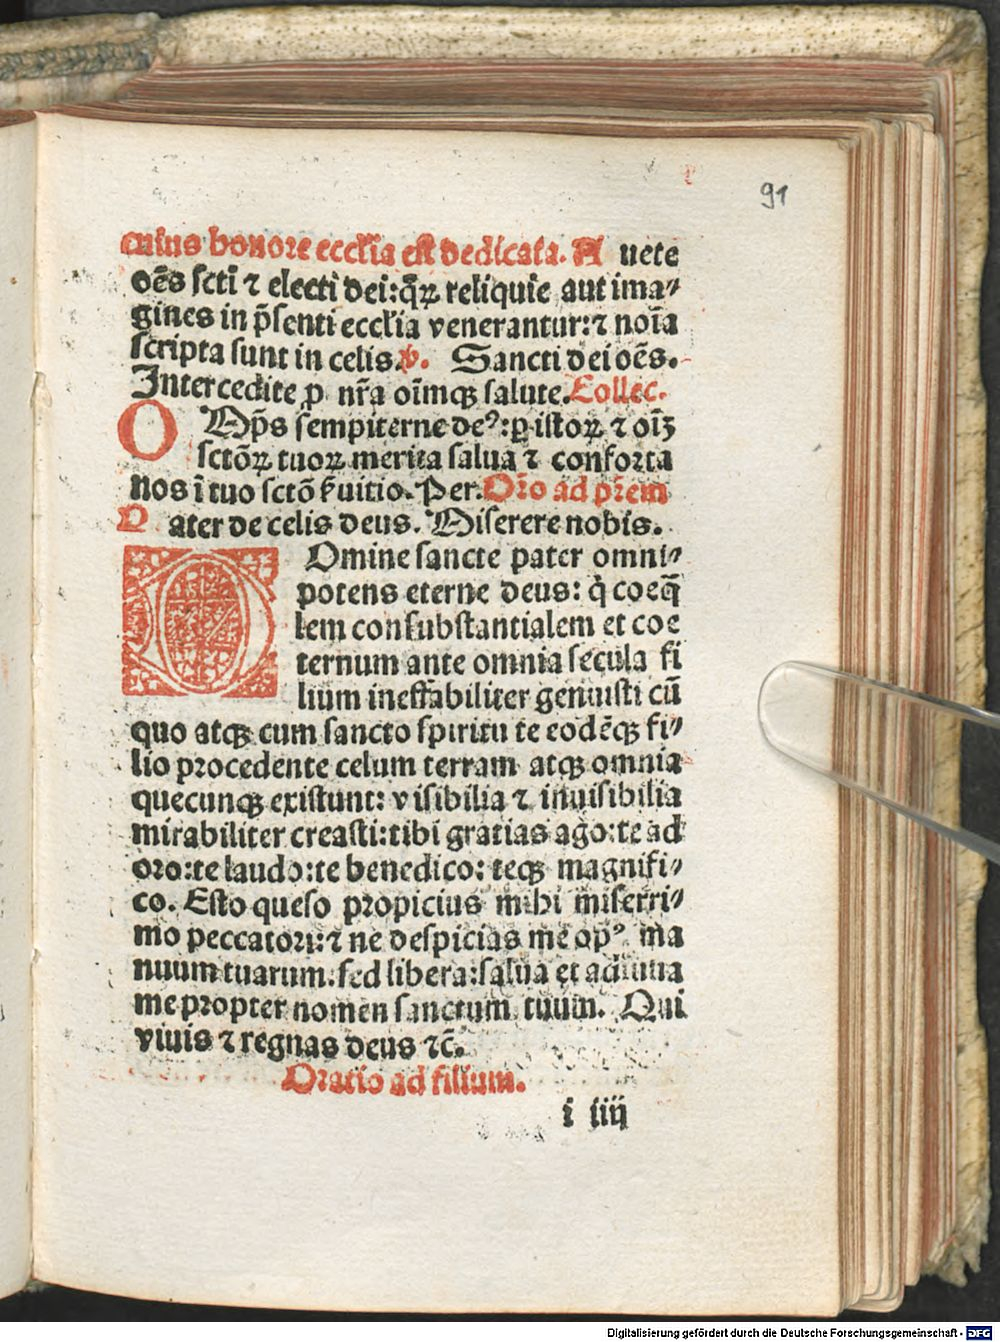 91
cuius honore eccl'ia est dedicata. A uete
oēs scti ⁊ electi dei:q̄ꝝ reliquie aut ima⸗
gines in p̄senti eccl'ia venerantur:⁊ noīa
scripta sunt in celis. ℣. Sancti dei oēs.
Intercedite ꝓ nr̄a oīmqꝫ salute. Collec.
O Mp̄s sempiterne deꝰ:ꝑ istoꝝ ⁊ oīꝫ
sctōꝝ tuoꝝ merita salua ⁊ conforta
nos ī tuo sctō ẜuitio. Per. Oŕo ad pŕem
P ater de celis deus. Miserere nobis.
D Omine sancte pater omni⸗
potens eterne deus: q̇ coeq̄
lem consubstantialem et coe
ternum ante omnia secula fi
lium ineffabiliter genuisti cū
quo atqꝫ cum sancto spiritu te eodēqꝫ fi⸗
lio procedente celum terram atqꝫ omnia
quecunqꝫ existunt: visibilia ⁊ inuisibilia
mirabiliter creasti:tibi gratias ago:te ad
oro:te laudo:te benedico: teqꝫ magnifi⸗
co. Esto queso propicius mihi miserri⸗
mo peccatori:⁊ ne despicias me opꝰ ma
nuum tuarum. sed libera:salua et adiuua
me propter nomen sanctum tuum. Qui
viuis ⁊ regnas deus ⁊c̄.
Oratio ad filium.
i iiij
Digitalisierung gefördert durch die Deutsche Forschungsgemeinschaft - DFG